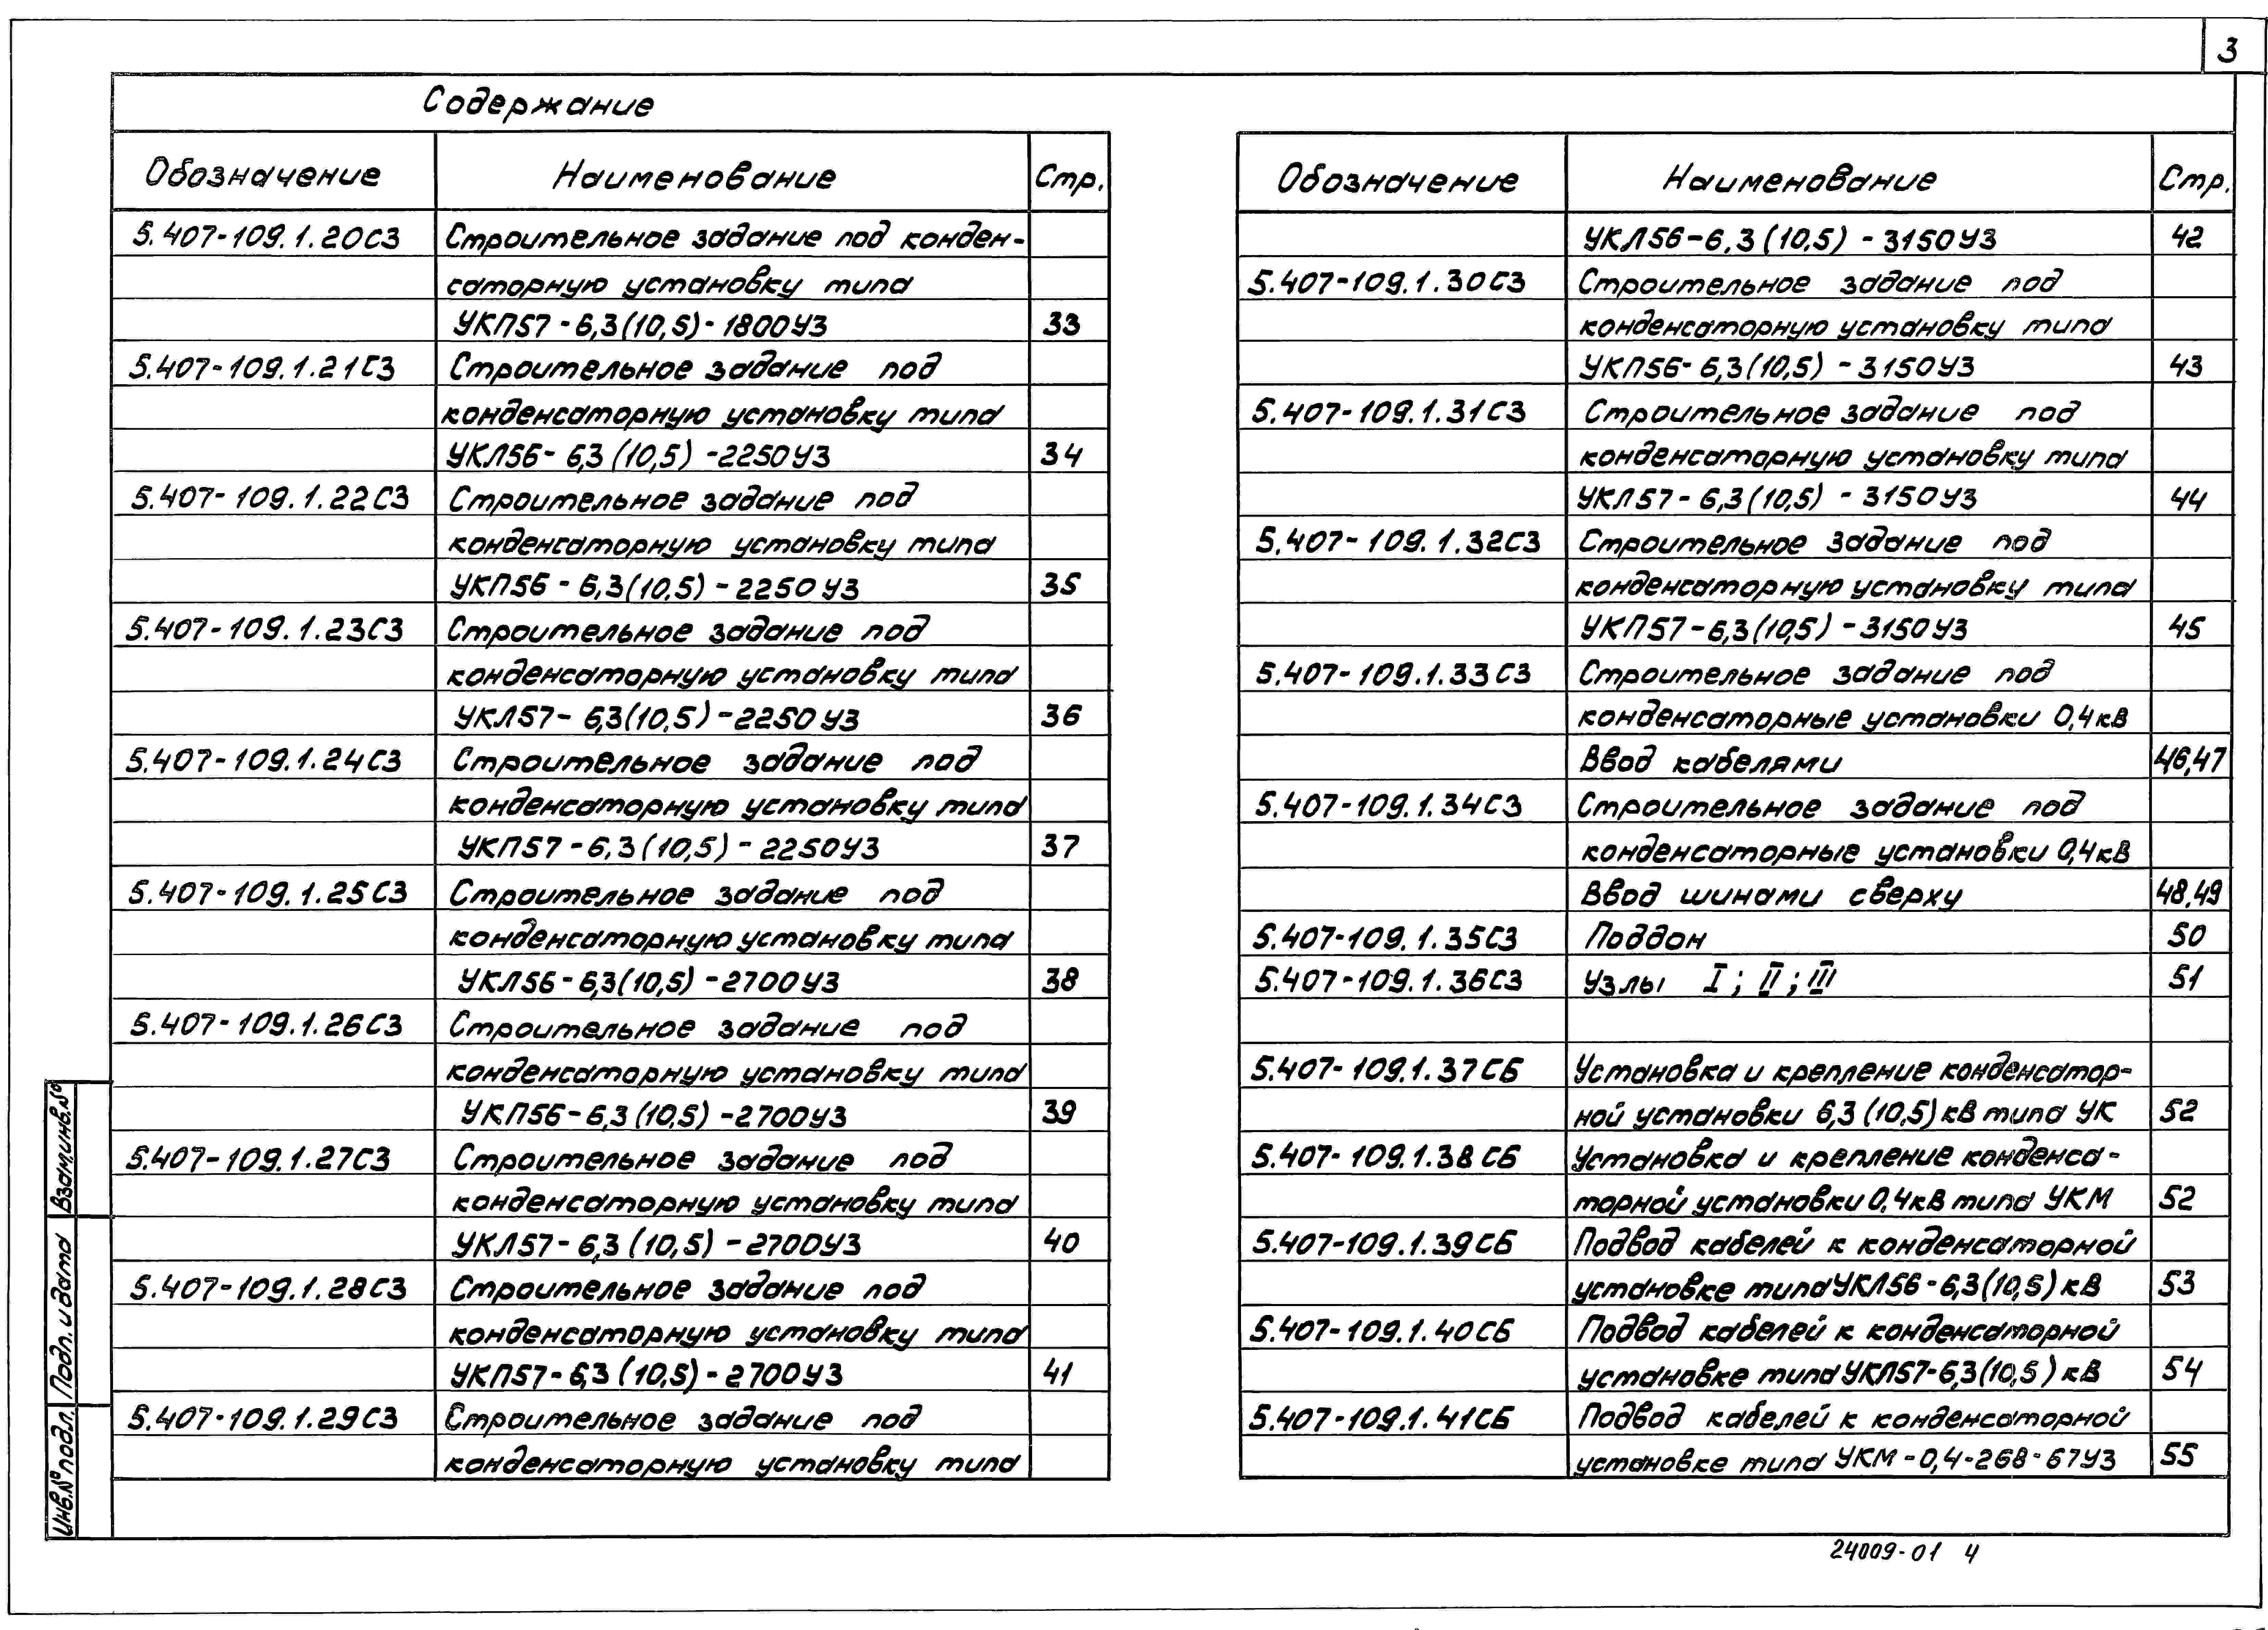 3
Содержание
Обозначение Наименование Стр.
5.407-109.1.20СЗ Строительное задание под конден-
саторную установку типа
УКП57-6,3(10,5)-1800У3 33
5.407-109.1.21СЗ Строительное задание под
конденсаторную установку типа
УКЛ56-6,3(10,5)-2250У3 34
5.407-109.1.22СЗ Строительное задание под
конденсаторную установку типа
УКП56-6,3(10,5)-2250У3 35
5.407-109.1.23СЗ Строительное задание под
конденсаторную установку типа
УКЛ57-6,3(10,5)-2250У3 36
5.407-109.1.24СЗ Строительное задание под
конденсаторную установку типа
УКП57-6,3(10,5)-2250У3 37
5.407-109.1.25СЗ Строительное задание под
конденсаторную установку типа
УКЛ56-6,3(10,5)-2700У3 38
5.407-109.1.26СЗ Строительное задание под
конденсаторную установку типа
УКП56-6,3(10,5)-2700У3 39
5.407-109.1.27СЗ Строительное задание под
конденсаторную установку типа
УКЛ57-6,3(10,5)-2700У3 40
5.407-109.1.28СЗ Строительное задание под
конденсаторную установку типа
УКП57-6,3(10,5)-2700У3 41
5.407-109.1.29СЗ Строительное задание под
конденсаторную установку типа
Обозначение Наименование Стр.
УКЛ56-6,3(10,5)-3150У3 42
5.407-109.1.30СЗ Строительное задание под
конденсаторную установку типа
УКП56-6,3(10,5)-3150У3 43
5.407-109.1.31СЗ Строительное задание под
конденсаторную установку типа
УКЛ57-6,3(10,5)-3150У3 44
5.407-109.1.32СЗ Строительное задание под
конденсаторную установку типа
УКП57-6,3(10,5)-3150У3 45
5.407-109.1.33СЗ Строительное задание под
конденсаторные установки 0,4кВ
Ввод кабелями 46,47
5.407-109.1.34СЗ Строительное задание под
конденсаторные установки 0,4кВ
Ввод шинами сверху 48,49
5.407-109.1.35СЗ Поддон 50
5.407-109.1.36СЗ Узлы I; II; III 51
5.407-109.1.37СБ Установка и крепление конденсатор-
ной установки 6,3(10,5)кВ типа УК 52
5.407-109.1.38СБ Установка и крепление конденса-
торной установки 0,4кВ типа УКМ 52
5.407-109.1.39СБ Подвод кабелей к конденсаторной
установке типа УКЛ56-6,3(10,5)кВ 53
5.407-109.1.40СБ Подвод кабелей к конденсаторной
установке типа УКЛ57-6,3(10,5)кВ 54
5.407-109.1.41СБ Подвод кабелей к конденсаторной
установке типа УКМ-0,4-268-67У3 55
Взам.инв.№
Подп. и дата
Инв.№ подл.
24009-01 4